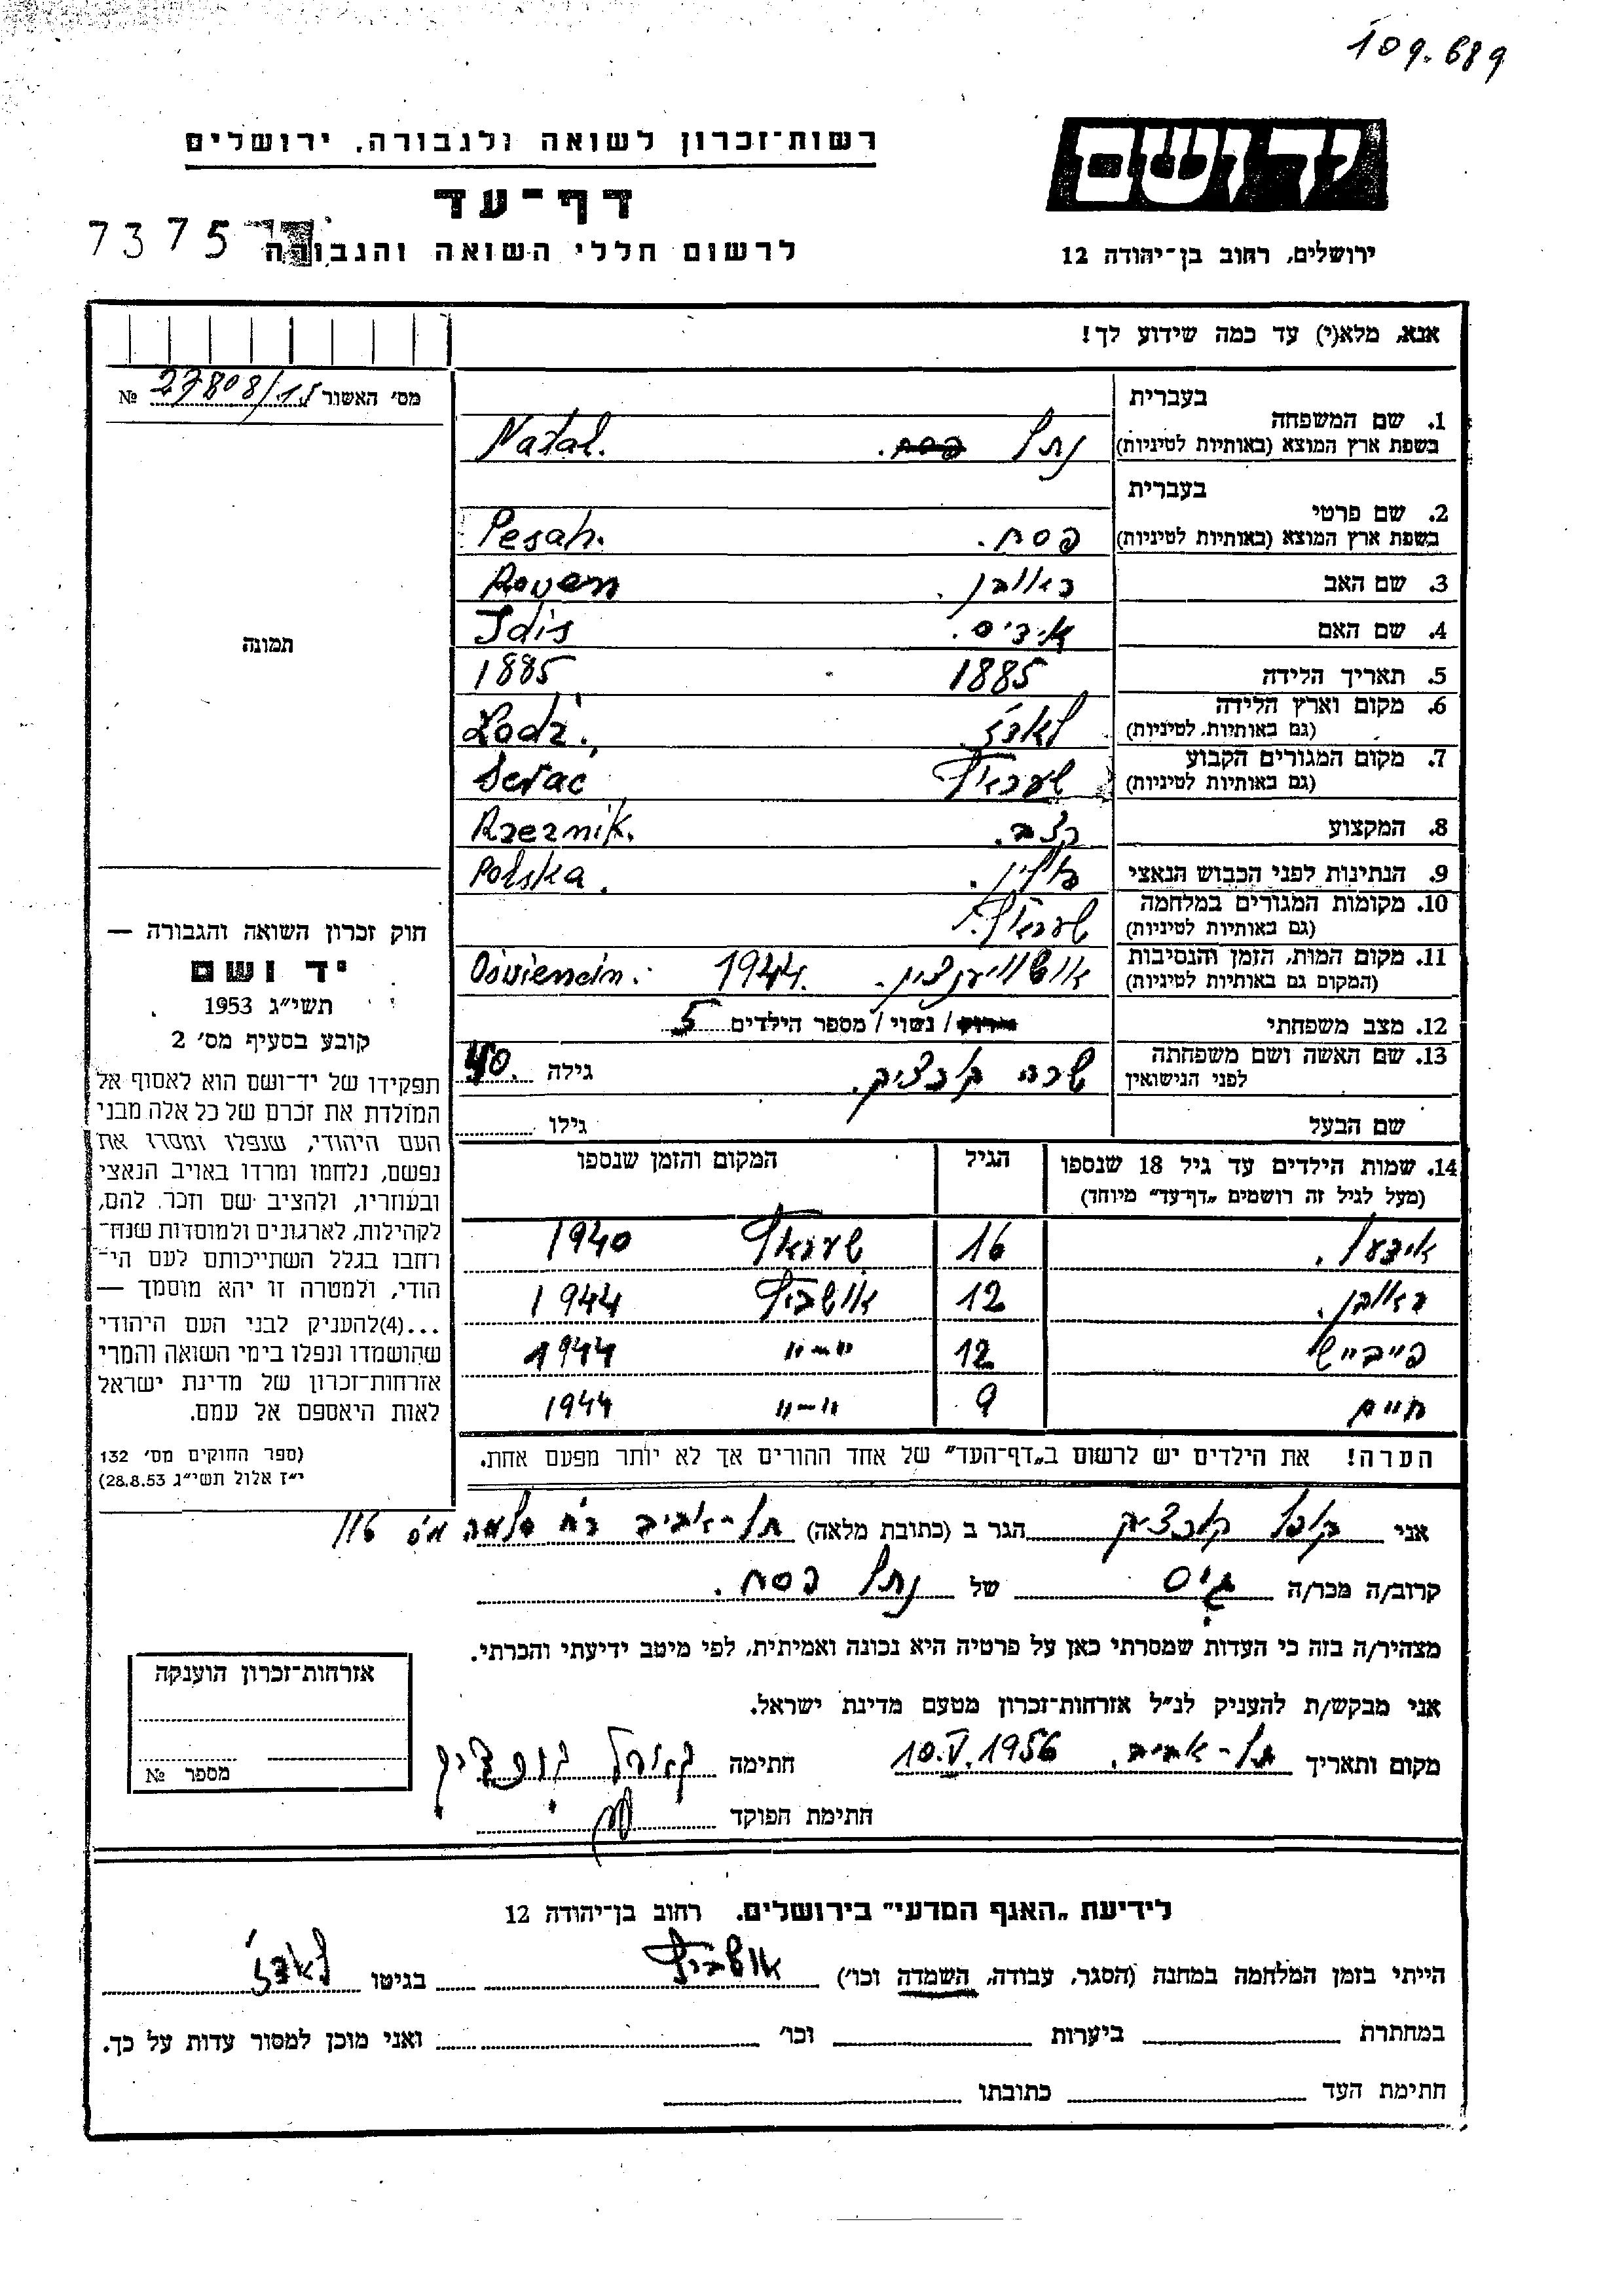 109.689
יד ושם
רשות־זכרון לשואה ולגבורה, ירושלים
דף־עד
7375
לרשום חללי השואה והגבורה
ירושלים, רחוב בן־יהודה 12
אנא, מלא(י) עד כמה שידוע לך!
מס׳ האשור 27808/15 №
בעברית
1. שם המשפחה
בשפת ארץ המוצא (באותיות לטיניות)
נתל Natal.
בעברית
2. שם פרטי
בשפת ארץ המוצא (באותיות לטיניות)
פסח. Pesah.
3. שם האב ראובן. Roven
4. שם האם אידיס. Idis
5. תאריך הלידה 1885 1885
6. מקום וארץ הלידה
(גם באותיות לטיניות)
לאדז Łodz.
7. מקום המגורים הקבוע
(גם באותיות לטיניות)
שעראץ Serac
8. המקצוע קצב. Rzeznik.
9. הנתינות לפני הכבוש הנאצי פולין. Polska.
10. מקומות המגורים במלחמה
(גם באותיות לטיניות)
שעראץ.
11. מקום המות, הזמן והנסיבות
(המקום גם באותיות לטיניות)
1944. Osviencin.
12. מצב משפחתי רווק / נשוי / מספר הילדים 5
13. שם האשה ושם משפחתה
לפני הנישואין
שרה קורצויק. גילה 40.
שם הבעל גילו
תמונה
14. שמות הילדים עד גיל 18 שנספו
(מעל לגיל זה רושמים „דף־עד” מיוחד)
הגיל המקום והזמן שנספו
16 שעראץ 1940
ראובן. 12 אושביץ 1944
פייבייש 12 „—„ 1944
חיים 9 „—„ 1944
הערה! את הילדים יש לרשום ב„דף־העד” של אחד ההורים אך לא יותר מפעם אחת.
חוק זכרון השואה והגבורה —
יד ושם
תשי״ג 1953
קובע בסעיף מס׳ 2
תפקידו של יד־ושם הוא לאסוף אל
המולדת את זכרם של כל אלה מבני
העם היהודי, שנפלו ומסרו את
נפשם, נלחמו ומרדו באויב הנאצי
ובעוזריו, ולהציב שם וזכר להם,
לקהילות, לארגונים ולמוסדות שנח־
רחבו בגלל השתייכותם לעם הי־
הודי, ולמטרה זו יהא מוסמך —
...(4)להעניק לבני העם היהודי
שהושמדו ונפלו בימי השואה והמרי
אזרחות־זכרון של מדינת ישראל
לאות היאספם אל עמם.
(ספר החוקים מס׳ 132
י״ז אלול תשי״ג 28.8.53)
אני קורצויק הגר ב (כתובת מלאה) תל-אביב רח סלמה מס 116
קרוב/ה מכר/ה גיס של נתל פסח.
מצהיר/ה בזה כי העדות שמסרתי כאן על פרטיה היא נכונה ואמיתית, לפי מיטב ידיעתי והכרתי.
אני מבקש/ת להעניק לנ״ל אזרחות־זכרון מטעם מדינת ישראל.
מקום ותאריך תל-אביב. 10.V.1956 חתימה
חתימת הפוקד
אזרחות־זכרון הוענקה
מספר №
לידיעת „האגף המדעי” בירושלים. רחוב בן־יהודה 12
הייתי בזמן המלחמה במחנה (הסגר, עבודה, השמדה וכו׳) אושביץ בגיטו לאדז׳
במחתרת ביערות וכו׳ ואני מוכן למסור עדות על כך.
חתימת העד כתובתו